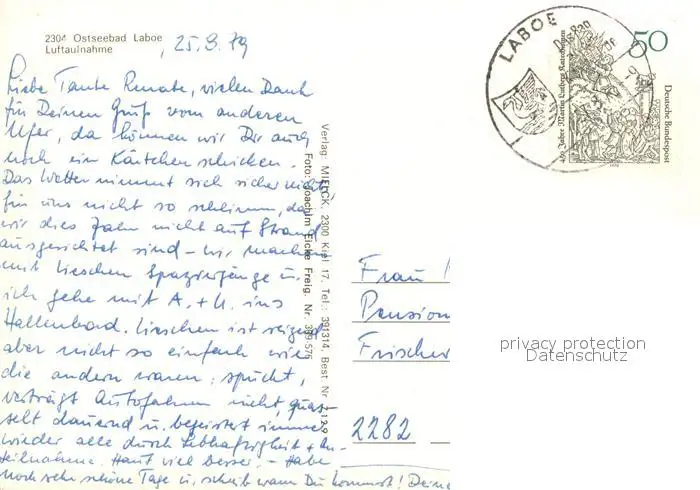 2304 Ostseebad Laboe
Luftaufnahme
25.9.79
Liebe Tante Renate, vielen Dank
für Deinen Gruß vom anderen
Ufer, da können wir Dir auch
noch ein Kärtchen schicken.
Das Wetter nimmt sich sicher nicht
für uns nicht so schlimm, da
wir dies Jahr nicht auf Strand
ausgerichtet sind – wir machen
mit Lieschen Spaziergänge u.
ich gehe mit A. + U. ins
Hallenbad. Lieschen ist reizend
aber nicht so einfach wie
die andern waren: spuckt,
verträgt Autofahren nicht, quas-
selt dauernd u. begeistert immer
wieder alle durch Lebhaftigkeit + An-
teilnahme. Haut viel besser. – Habe
noch sehr schöne Tage u. schreib wann Du kommst! Deine
Verlag: MIELCK, 2300 Kiel 17, Tel.: 391314, Best. Nr.
Foto: Joachim Eicke Freig. Nr.
LABOE
50
Deutsche Bundespost
450 Jahre Martin Luthers Katechismus
1979
Frau
Pension
Frischer
2282
privacy protection
Datenschutz